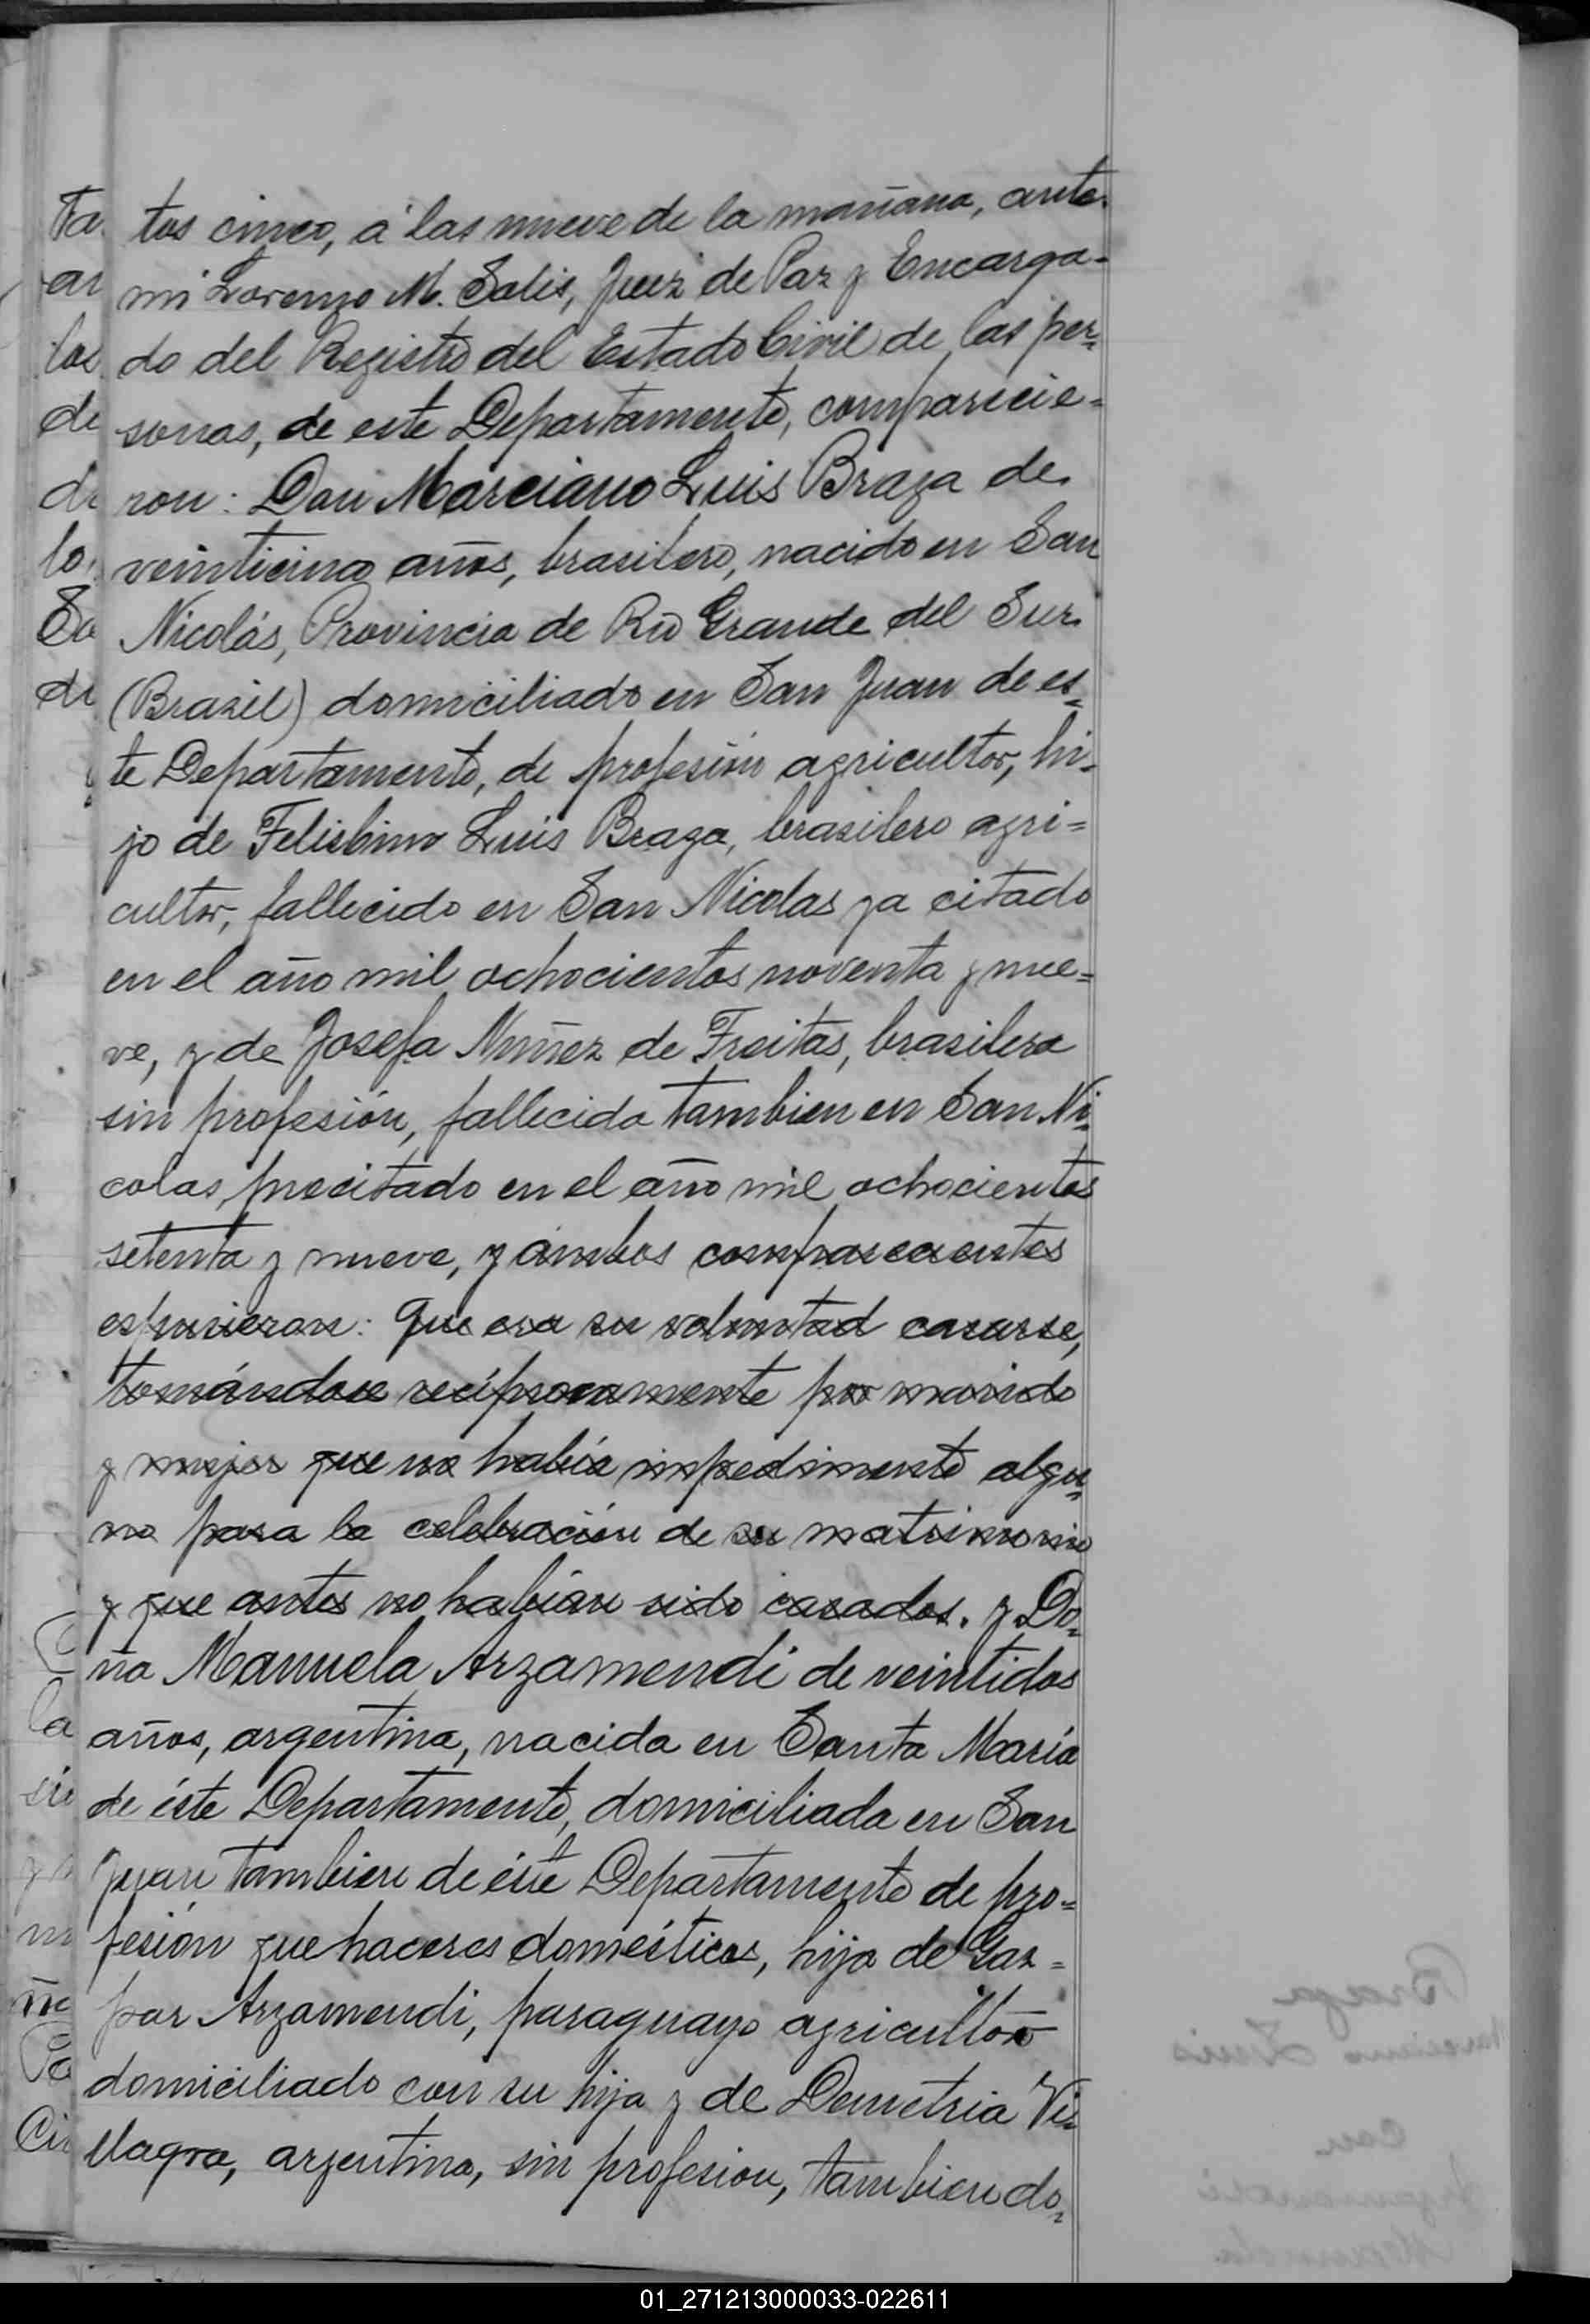 tos cinco, á las nueve de la mañana, ante
mi Lorenzo M. Salis, Juez de Paz y Encarga-
do del Registro del Estado Civil de las per=
sonas, de este Departamento, comparecie=
ron: Don Marciano Luis Braga de
veinticinco años, brasilero, nacido en San
Nicolás, Provincia de Rio Grande del Sur
(Brasil) domiciliado en San Juan de es=
te Departamento, de profesión agricultor, hi=
jo de Felisbino Luis Braga, brasilero agri=
cultor, fallecido en San Nicolas ya citado
en el año mil ochocientos noventa y nue=
ve, y de Josefa Nuñez de Freitas, brasilera
sin profesión, fallecida tambien en San Ni=
colas, precitado en el año mil ochocientos
setenta y nueve, y ambos comparecientes
espusieron: Que era su voluntad casarse,
tomándose recíprocamente por marido
y mujer que no había impedimento algu=
no para la celebración de su matrimonio
y que antes no habían sido casados. y Do=
ña Manuela Arzamendi de veintidos
años, argentina, nacida en Santa María
de éste Departamento, domiciliada en San
Juan tambien de éste Departamento de pro=
fesión que haceres domésticos, hija de Gas=
par Arzamendi, paraguayo agricultor
domiciliado con su hija y de Demetria Vi=
llagra, argentina, sin profesion, tambien do=
01_271213000033-022611